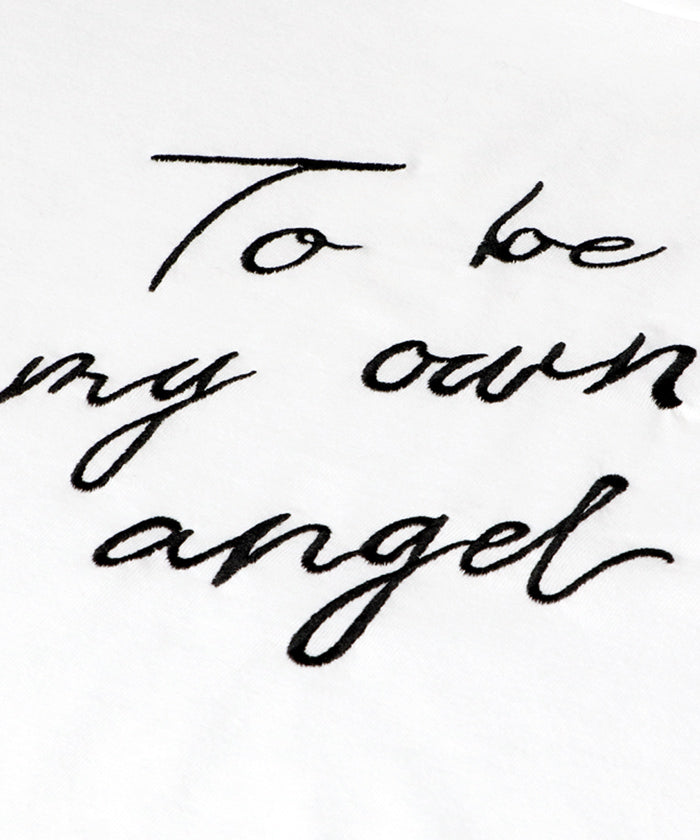 To be
my own
angel